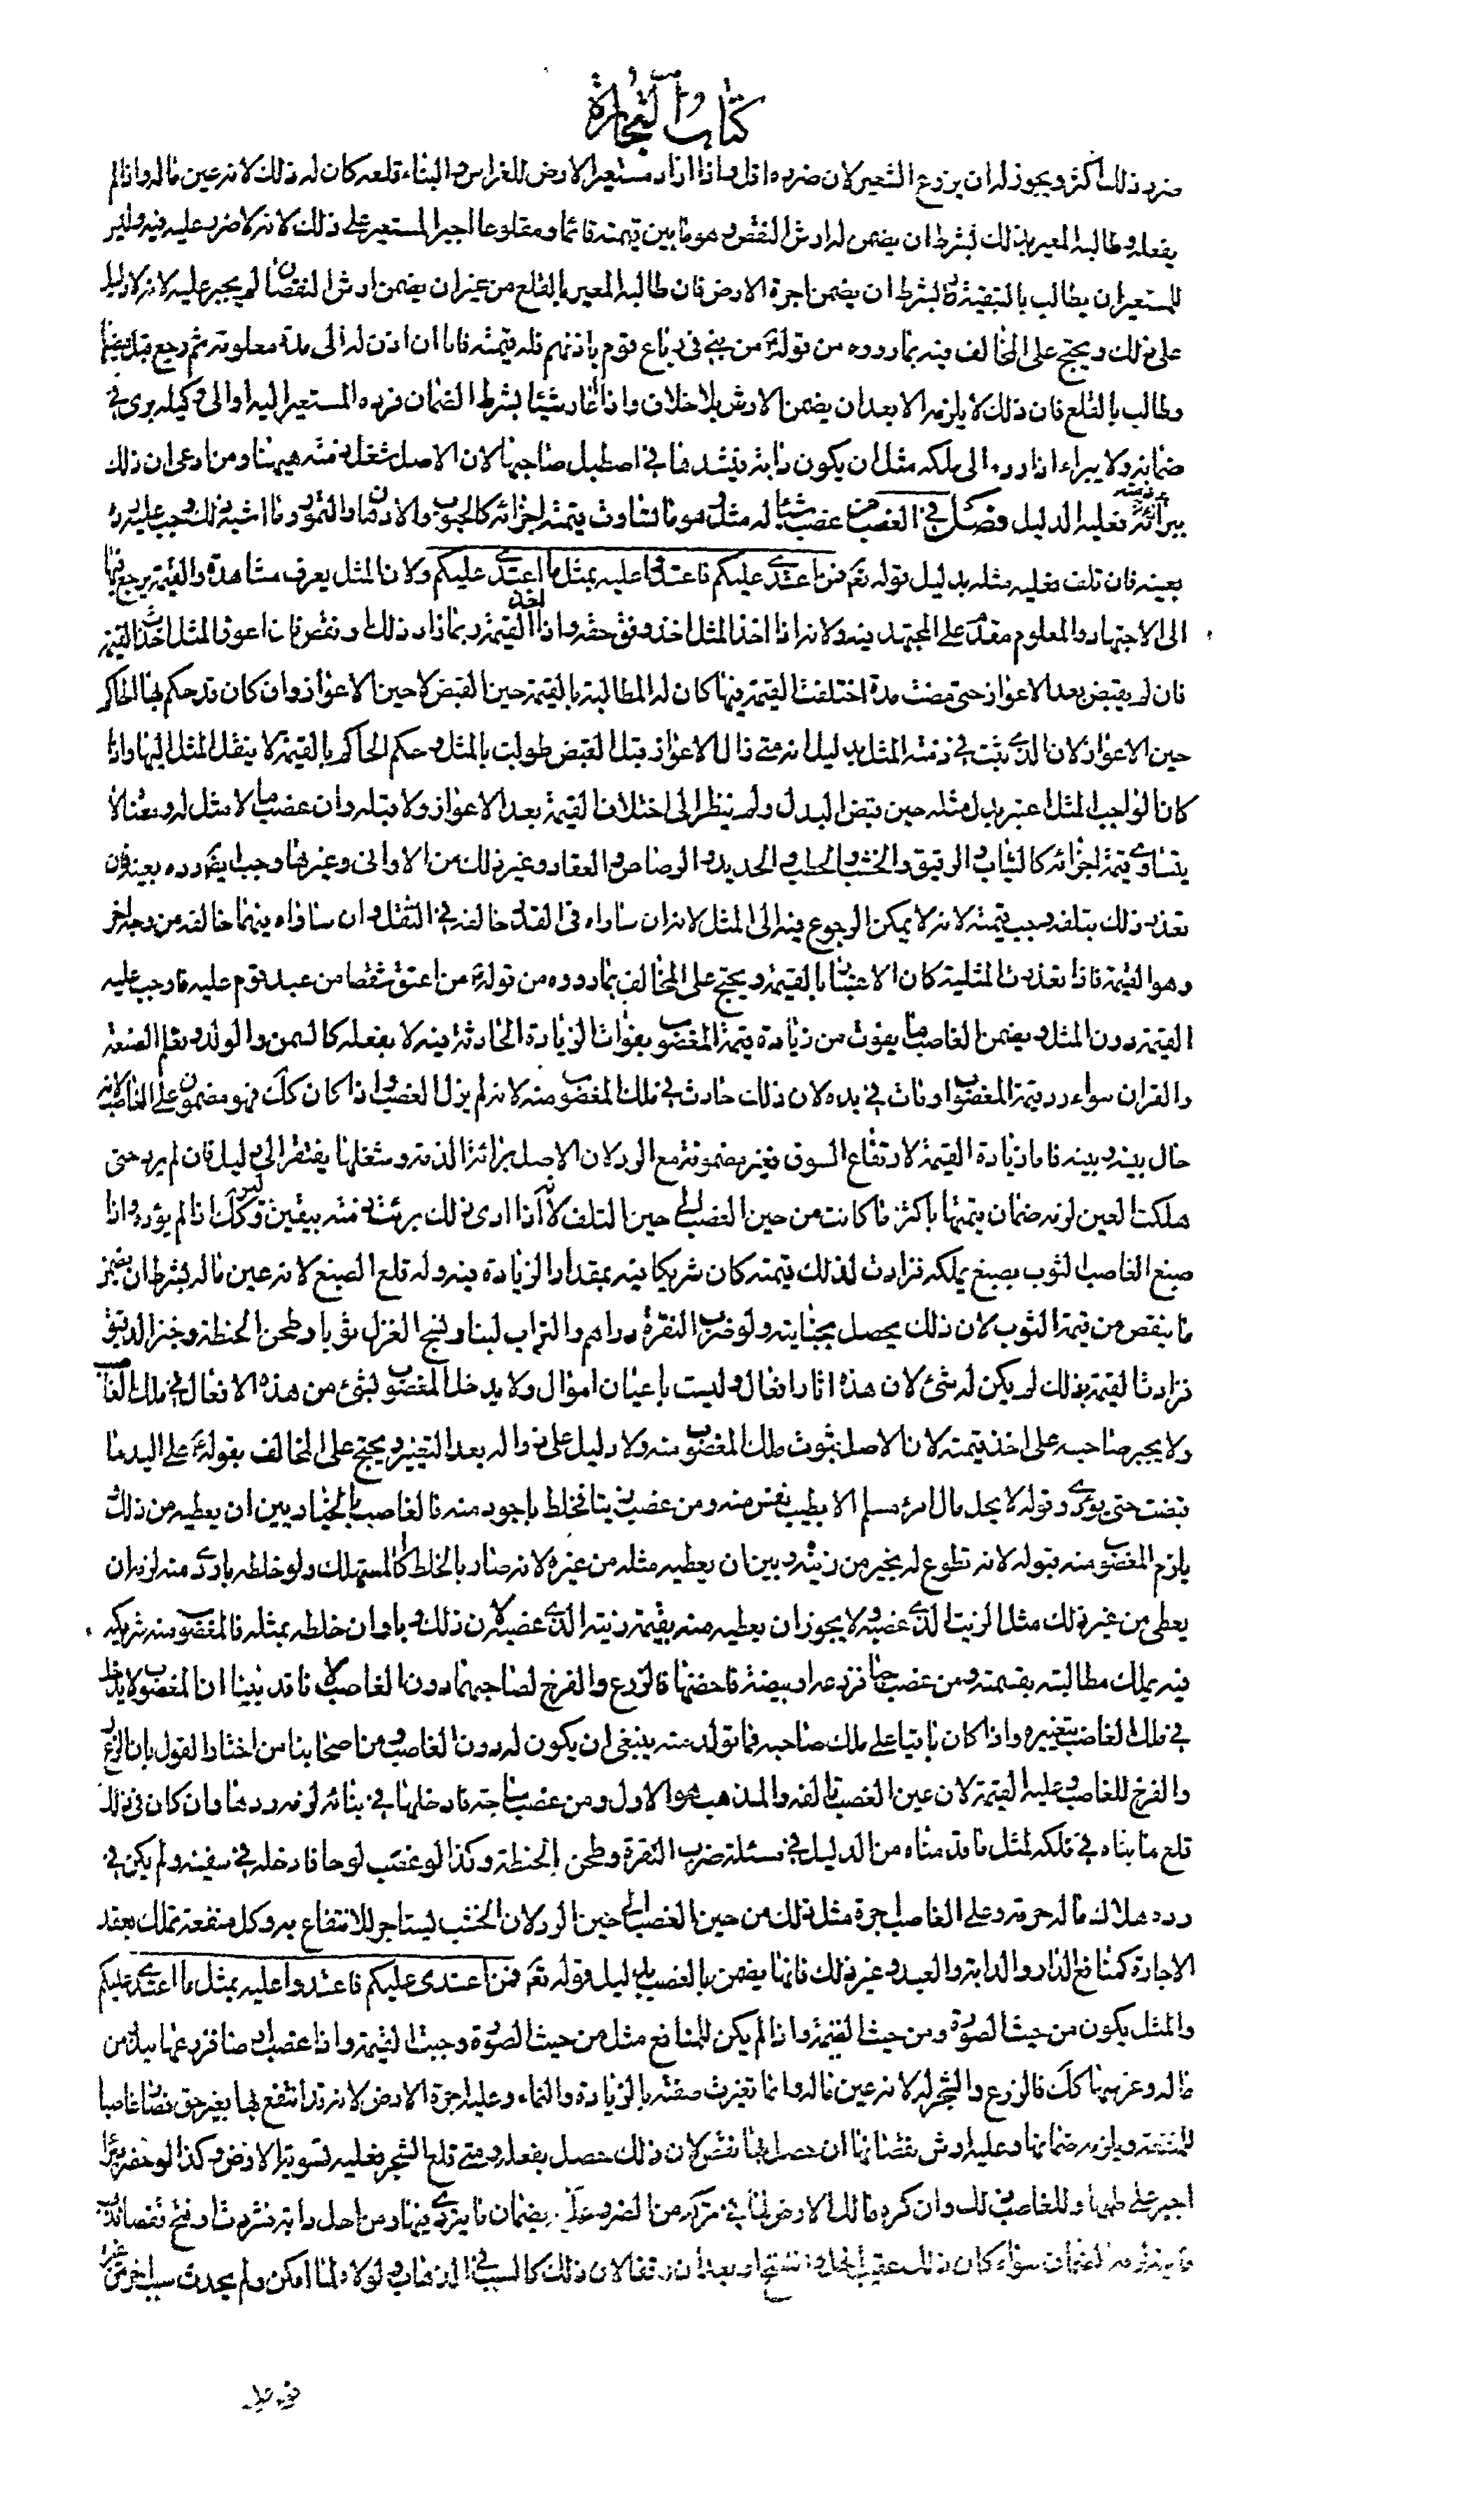 كتاب التجارة
ضرر ذلك اكثر ويجوز له ان يزرع الشعير لان ضرره اقل واذا اراد مستعير الارض للغراس والبناء قلعه كان له ذلك لانه عين ماله واذا لم
يفعله وطالبه المعير بذلك بشرط ان يضمن له ارش النقص وهو ما بين قيمته قائما ومقلوعا اجبر المستعير على ذلك لانه لا ضرر عليه فيه وليس
للمستعير ان يطالب بالتبقية بشرط ان يضمن اجرة الارض فان طالبه المعير بالقلع من غير ان يضمن ارش النقصان لم يجبر عليه لانه لا دليل
على ذلك ويحتج على المخالف فيه بما رووه من قوله من بنى في رباع قوم باذنهم فله قيمته فاما ان اذن له الى مدة معلومة ثم رجع قبل مضيها
وطالب بالقلع فان ذلك لا يلزمه الا بعد ان يضمن الارش بلا خلاف واذا اعار شيئا بشرط الضمان فرده المستعير اليه او الى وكيله برئ من
ضمانه ولا يبراء اذا رده الى ملكه مثل ان يكون دابة فيشدها في اصطبل صاحبها لان الاصل شغل ذمته هيهنا ومن ادعى ان ذلك
يبرئ ذمته فعليه الدليل فصل في الغصب من غصب شيئا له مثل وهو ما تساوت قيمته اجزائه كالحبوب والادهان والتمور وما اشبه ذلك وجب عليه رده
بعينه فان تلف فعليه مثله بدليل قوله تعم فمن اعتدى عليكم فاعتدوا عليه بمثل ما اعتدى عليكم ولان المثل يعرف مشاهدة والقيمة يرجع فيها
الى الاجتهاد والمعلوم مقدم على المجتهد فيه ولانه اذا اخذ المثل اخذ وفق حقه واذا اخذ القيمة ربما زاد ذلك ونقص فان اعوز المثل اخذت القيمة
فان لم يقبض بعد الاعواز حتى مضت مدة اختلفت القيمة فيها كان له المطالبة بالقيمة حين القبض لا حين الاعواز وان كان قد حكم بها الحاكم
حين الاعواز لان الذي ثبت في ذمته المثل بدليل انه متى زال الاعواز قبل القبض طولبت بالمثل وحكم الحاكم بالقيمة لا ينقل المثل اليها واذا
كان الواجب المثل اعتبر بدل مثله حين قبض البدل ولم ينظر الى اختلاف القيمة بعد الاعواز ولا قبله وان غصب ما لا مثل له ومعناه لا
يتساوى قيمة اجزائه كالثياب والرقيق والخشب والحطب والحديد والرصاص والعقار وغير ذلك من الاواني وغيرها وجب ايضا رده بعينه فان
تعذر ذلك بتلفه وجبت قيمته لانه لا يمكن الرجوع فيه الى المثل لانه ان ساواه في القدر خالفه في الثقل وان ساواه فيهما خالفه من وجه اخر
وهو القيمة فاذا تعذرت المثلية كان الاعتبار بالقيمة ويحتج على المخالف بما رووه من قوله من اعتق شقصا من عبد قوم عليه فاوجب عليه
القيمة دون المثل ويضمن الغاصب ما يفوت من زيادة قيمة المغصوب بفوات الزيادة الحادثة فيه لا بفعله كالسمن والولد وتعلم الصنعة
والقران سواء رد قيمة المغصوب او مات في يده لان ذلك حادث في ملك المغصوب منه لانه لم يزل الغصب واذا كان كك فهو مضمون على الغاصب لانه
حال بينه وبينه فاما زيادة القيمة لارتفاع السوق فغير مضمونة مع الرد لان الاصل برائة الذمة وشغلها يفتقر الى دليل فان لم يرد حتى
هلكت العين لزمه ضمان قيمتها باكثر ما كانت من حين الغصب الى حين التلف لانه اذا ادى ذلك برئت ذمته بيقين وليس كك اذا لم يؤده واذا
صبغ الغاصب الثوب بصبغ يملكه فزادت لذلك قيمته كان شريكا فيه بمقدار الزيادة فيه وله قلع الصبغ لانه عين ماله بشرط ان يضمن
ما ينقص من قيمة الثوب لان ذلك يحصل بجنايته ولو ضرب النقرة دراهم والتراب لبنا ونسج الغزل ثوبا وطحن الحنطة وخبز الدقيق
فزادت القيمة بذلك لم يكن له شئ لان هذه اثار افعال وليست باعيان اموال ولا يدخل المغصوب بشئ من هذه الافعال في ملك الغاصب
ولا يجبر صاحبه على اخذ قيمته لان الاصل ثبوت ملك المغصوب منه ولا دليل على زواله بعد التغيير ويحتج على المخالف بقوله على اليد ما
قبضت حتى يؤدى وقوله لا يحل مال امرئ مسلم الا بطيب نفس منه ومن غصب زيتا فخلط باجود منه فالغاصب بالخيار بين ان يعطيه من ذلك
يلزم المغصوب منه قبوله لانه تطوع له بخير من زيته وبين ان يعطيه مثله من غيره لانه صار بالخلط كالمستهلك ولو خلطه باردى منه لزمه ان
يعطى من غير ذلك مثل الزيت الذي غصبه ولا يجوز ان يعطيه منه بقيمة زيته الذي غصبه لان ذلك ربا وان خلطه بمثله فالمغصوب منه شريكه
فيه يملك مطالبته بقسمته ومن غصب حبا فزرعه او بيضة فاحضنها فالزرع والفرخ لصاحبهما دون الغاصب لانا قد بينا ان المغصوب لا يدخل
في ملك الغاصب بتغييره واذا كان باقيا على ملك صاحبه فما تولد منه ينبغي ان يكون له دون الغاصب ومن اصحابنا من اختار القول بان الزرع
والفرخ للغاصب وعليه القيمة لان عين الغصب تالفة والمذهب هو الاول ومن غصب ساجة فادخلها في بنائه لزمه ردها وان كان في ذلك
قلع ما بناه في ملكه لمثل ما قدمناه من الدليل في مسئلة ضرب النقرة وطحن الحنطة وكذا لو غصب لوحا فادخله في سفينة ولم يكن في
رده هلاك ما له حرمة وعلى الغاصب اجرة مثل ذلك من حين الغصب الى حين الرد لان الخشب يستاجر للانتفاع به وكل منفعة تملك بعقد
الاجارة كمنافع الدار والدابة والعبد وغير ذلك فانها يضمن بالغصب بدليل قوله تعم فمن اعتدى عليكم فاعتدوا عليه بمثل ما اعتدى عليكم
والمثل يكون من حيث الصورة ومن حيث القيمة واذا لم يكن للمنافع مثل من حيث الصورة وجبت القيمة واذا غصب ارضا فزرعها ببذر من
ماله وغرسها كك فالزرع والشجر له لانه عين ماله وانما تغيرت صفته بالزيادة والنماء وعليه اجرة الارض لانه قد انتفع بها بغير حق فصار غاصبا
للمنفعة ويلزمه ضمانها وعليه ارش نقصانها ان حصل بها نقص لان ذلك حصل بفعله ومتى قلع الشجر فعليه تسوية الارض وكذا لو حفر بئرا
اجبر على طمها وللغاصب ذلك وان كره مالك الارض لما في تركه من الضرر عليه بضمان ما يتردى فيها ومن احل دابة فشردت او فتح قفصا
لزمه الضمان سواء كان ذلك عقيب الحل او الفتح او بعد ان وقفا لان ذلك كالسبب في الذهاب ولولاه لما امكن ولم يحدث سبب اخر من غيره